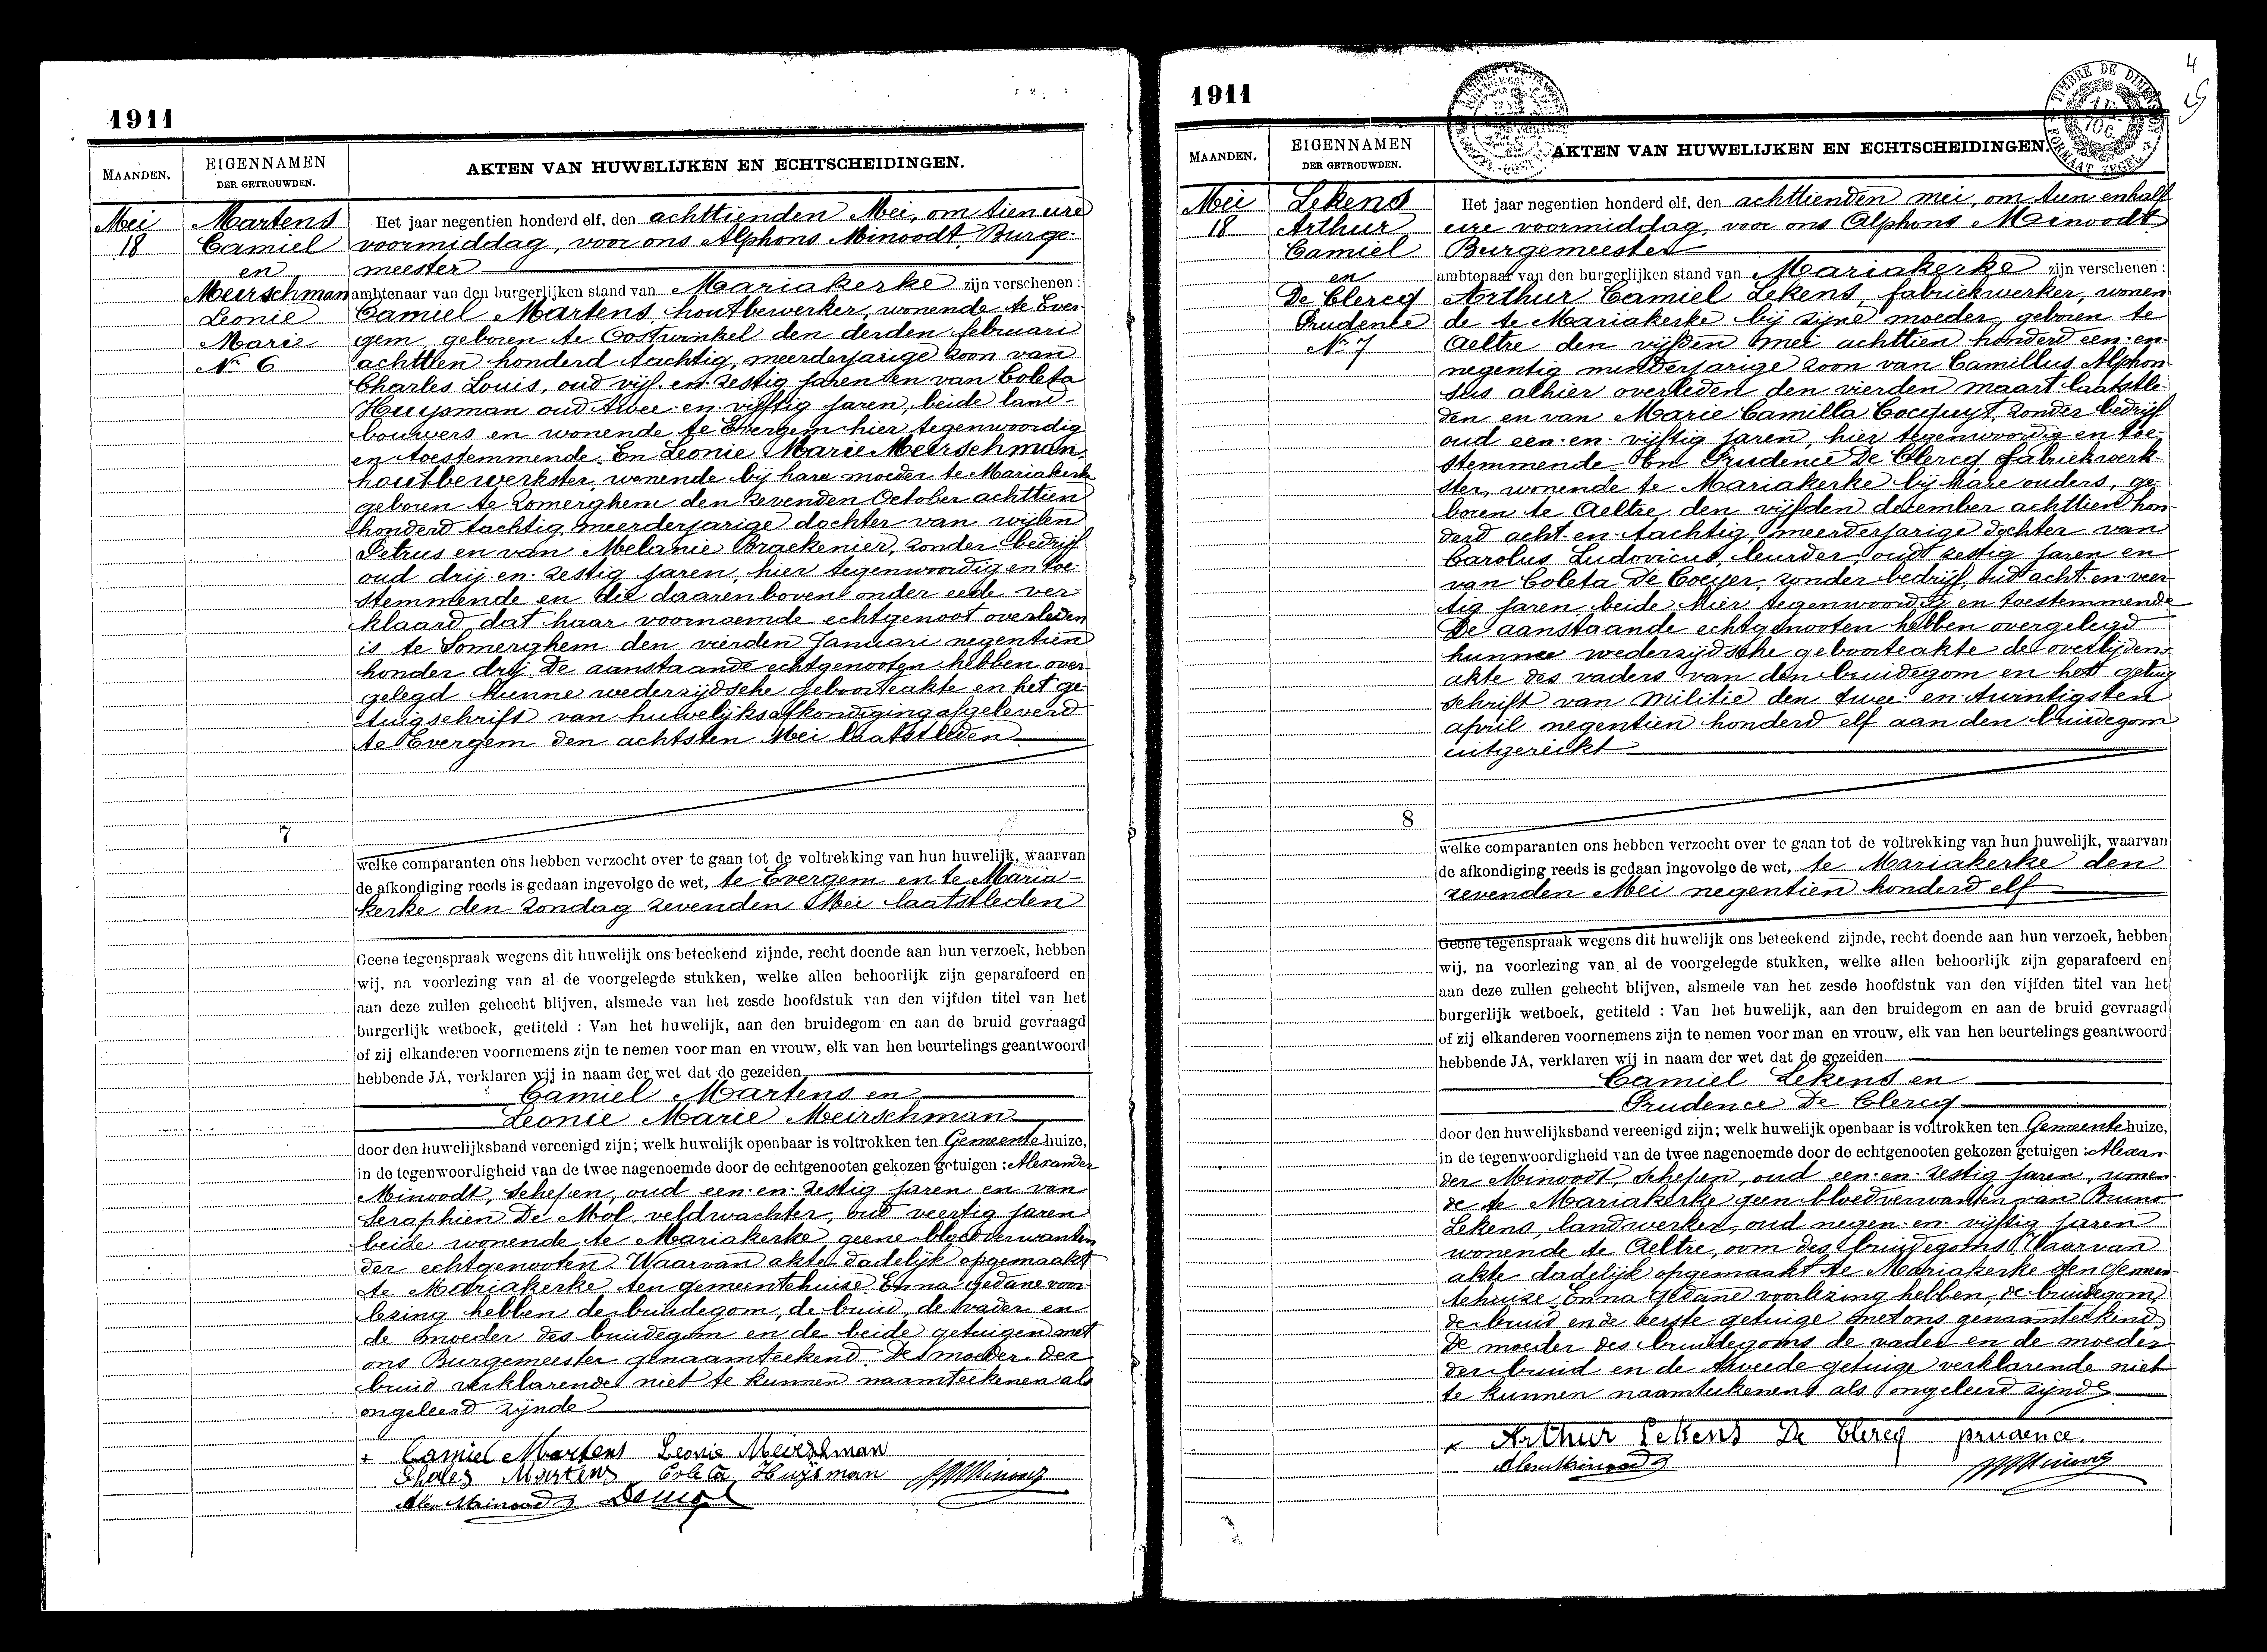 1911
MAANDEN.
EIGENNAMEN
DER GETROUWDEN.
AKTEN VAN HUWELIJKEN EN ECHTSCHEIDINGEN.
Mei
18
Martens
Camiel
en
Meerschman
Leonie
Marie
No 6
7
Het jaar negentien honderd elf, den achttienden Mei, om tien ure
voormiddag, voor ons Alphons Minoodt, Burge-
meester
ambtenaar van den burgerlijken stand van Mariakerke zijn verschenen:
Camiel Martens, houtbewerker, wonende te Ever
gem, geboren te Oostwinkel den derden februari
achttien honderd tachtig, meerderjarige zoon van
Charles Louis, oud vijf-en-zestig jaren en van Coleta
Huysman oud twee-en-vijftig jaren, beide land-
bouwers en wonende te Evergem hier tegenwoordig
en toestemmende. En Leonie Marie Meirschman,
houtbewerkster, wonende bij hare moeder te Mariakerke
geboren te Zomerghem den zevenden October achttien
honderd tachtig, meerderjarige dochter van wijlen
Petrus en van Melanie Braekenier, zonder bedrijf
oud drij-en-zestig jaren, hier tegenwoordig en toe-
stemmende en die daarenboven onder eede ver-
klaard dat haar voornoemde echtgenoot overleden
is te Somerghem den vierden Januari negentien
honder drij. De aanstaande echtgenooten hebben over
gelegd hunne wederzijdsche geboorteakte en het ge-
tuigschrift van huwelijksafkondiging afgeleverd
te Evergem den achtsten Mei laatstleden
welke comparanten ons hebben verzocht over te gaan tot de voltrekking van hun huwelijk, waarvan
de afkondiging reeds is gedaan ingevolge de wet, te Evergem en te Maria-
kerke den zondag zevenden Mei laatstleden
Geene tegenspraak wegens dit huwelijk ons beteekend zijnde, recht doende aan hun verzoek, hebben
wij, na voorlezing van al de voorgelegde stukken, welke allen behoorlijk zijn geparafeerd en
aan deze zullen gehecht blijven, alsmede van het zesde hoofdstuk van den vijfden titel van het
burgerlijk wetboek, getiteld : Van het huwelijk, aan den bruidegom en aan de bruid gevraagd
of zij elkanderen voornemens zijn te nemen voor man en vrouw, elk van hen beurtelings geantwoord
hebbende JA, verklaren wij in naam der wet dat de gezeiden
Camiel Martens en
Leonie Marie Meirschman
door den huwelijksband vereenigd zijn; welk huwelijk openbaar is voltrokken ten Gemeentehuize,
in de tegenwoordigheid van de twee nagenoemde door de echtgenooten gekozen getuigen : Alexander
Minoodt, schepen, oud een-en-zestig jaren en van
Seraphien De Mol, veldwachter, oud veertig jaren
beide wonende te Mariakerke, geene bloedverwanten
der echtgenooten. Waarvan akte dadelijk opgemaakt
te Mariakerke ten gemeentehuise En na gedane voor-
lesing hebben de bruidegom, de bruid, de vader en
de moeder des bruidegom en de beide getuigen met
ons Burgemeester genaamteekend. De moeder der
bruid verklarende niet te kunnen naamteekenen als
ongeleerd zijnde
Camiel Martens Leonie Meirschman
Chales Martens Coleta Huijsman
Alex Minoodt Demol
1911
4
MAANDEN.
EIGENNAMEN
DER GETROUWDEN.
AKTEN VAN HUWELIJKEN EN ECHTSCHEIDINGEN.
TIMBRE DE DIMENSION
FORMAAT ZEGEL
Mei
18
Lekens
Arthur
Camiel
en
De Clercq
Prudence
No 7
8
Het jaar negentien honderd elf, den achttienden mei, om tien enhalf
ure voormiddag, voor ons Alphons Minoodt
Burgemeester
ambtenaar van den burgerlijken stand van Mariakerke zijn verschenen:
Arthur Camiel Lekens, fabriekwerker, wonen
de te Mariakerke bij zijne moeder, geboren te
Aeltre den vijfden mei achttien honderd een-en-
negentig minderjarige zoon van Camillus Alphon-
sus alhier overleden den vierden maart laatstle-
den en van Marie Camilla Cocquyt, zonder bedrijf
oud een-en-vijftig jaren, hier tegenwoordig en toe-
stemmende En Prudence De Clercq, fabriekwerk-
ster, wonende te Mariakerke bij hare ouders, ge-
boren te Aeltre den vijfden december achttien hon-
derd acht-en-tachtig, meerderjarige dochter van
Carolus Ludovicus, leurder, oud zestig jaren en
van Coleta De Coeyer, zonder bedrijf, oud acht-en-veer
tig jaren, beide hier tegenwoordig en toestemmende
De aanstaande echtgenooten hebben overgelegd
hunne wederzijdsche geboorteakte de overlijdens-
akte des vaders van den bruidegom en het getuig
schrift van militie den twee-en-twintigsten
april negentien honderd elf aan den bruidegom
uitgereikt
welke comparanten ons hebben verzocht over te gaan tot de voltrekking van hun huwelijk, waarvan
de afkondiging reeds is gedaan ingevolge de wet, te Mariakerke den
zevenden Mei negentien honderd elf
Geene tegenspraak wegens dit huwelijk ons beteekend zijnde, recht doende aan hun verzoek, hebben
wij, na voorlezing van al de voorgelegde stukken, welke allen behoorlijk zijn geparafeerd en
aan deze zullen gehecht blijven, alsmede van het zesde hoofdstuk van den vijfden titel van het
burgerlijk wetboek, getiteld : Van het huwelijk, aan den bruidegom en aan de bruid gevraagd
of zij elkanderen voornemens zijn te nemen voor man en vrouw, elk van hen beurtelings geantwoord
hebbende JA, verklaren wij in naam der wet dat de gezeiden
Camiel Lekens en
Prudence De Clercq
door den huwelijksband vereenigd zijn; welk huwelijk openbaar is voltrokken ten Gemeentehuize,
in de tegenwoordigheid van de twee nagenoemde door de echtgenooten gekozen getuigen : Alexan-
der Minoodt, schepen, oud een-en-zestig jaren, wonen-
de te Mariakerke geen bloedverwanten van Bruno
Lekens, landwerker, oud negen-en-vijftig jaren
wonende te Aeltre, oom des bruidegoms. Waarvan
akte dadelijk opgemaakt te Mariakerke ten gemeen-
tehuise. En na gedane voorlezing hebben, de bruidegom,
de bruid en de eerste getuige met ons genaamteekend.
De moeder des bruidegoms de vader en de moeder
der bruid en de tweede getuige verklarende niet
te kunnen naamteekenen als ongeleerd zijnde
Arthur Lekens De Clercq prudence
Alex Minoodt